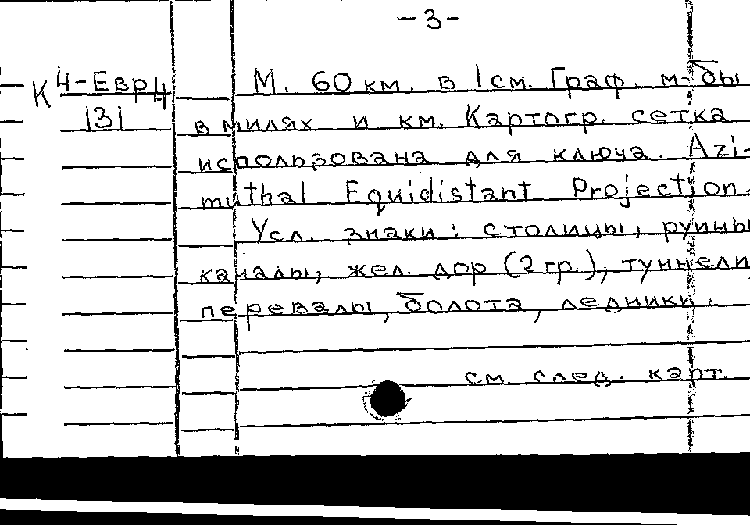 -3-
К 4-Евр4
131
М. 60 км. в 1 см. Граф. м-бы
в милях и км. Картогр. сетка
использована для ключа. Azi-
muthal Equidistant Projection.
Усл. знаки: столицы, руины,
каналы, жел. дор (2 гр.), туннели,
перевалы, болота, ледники.
см. след. карт.